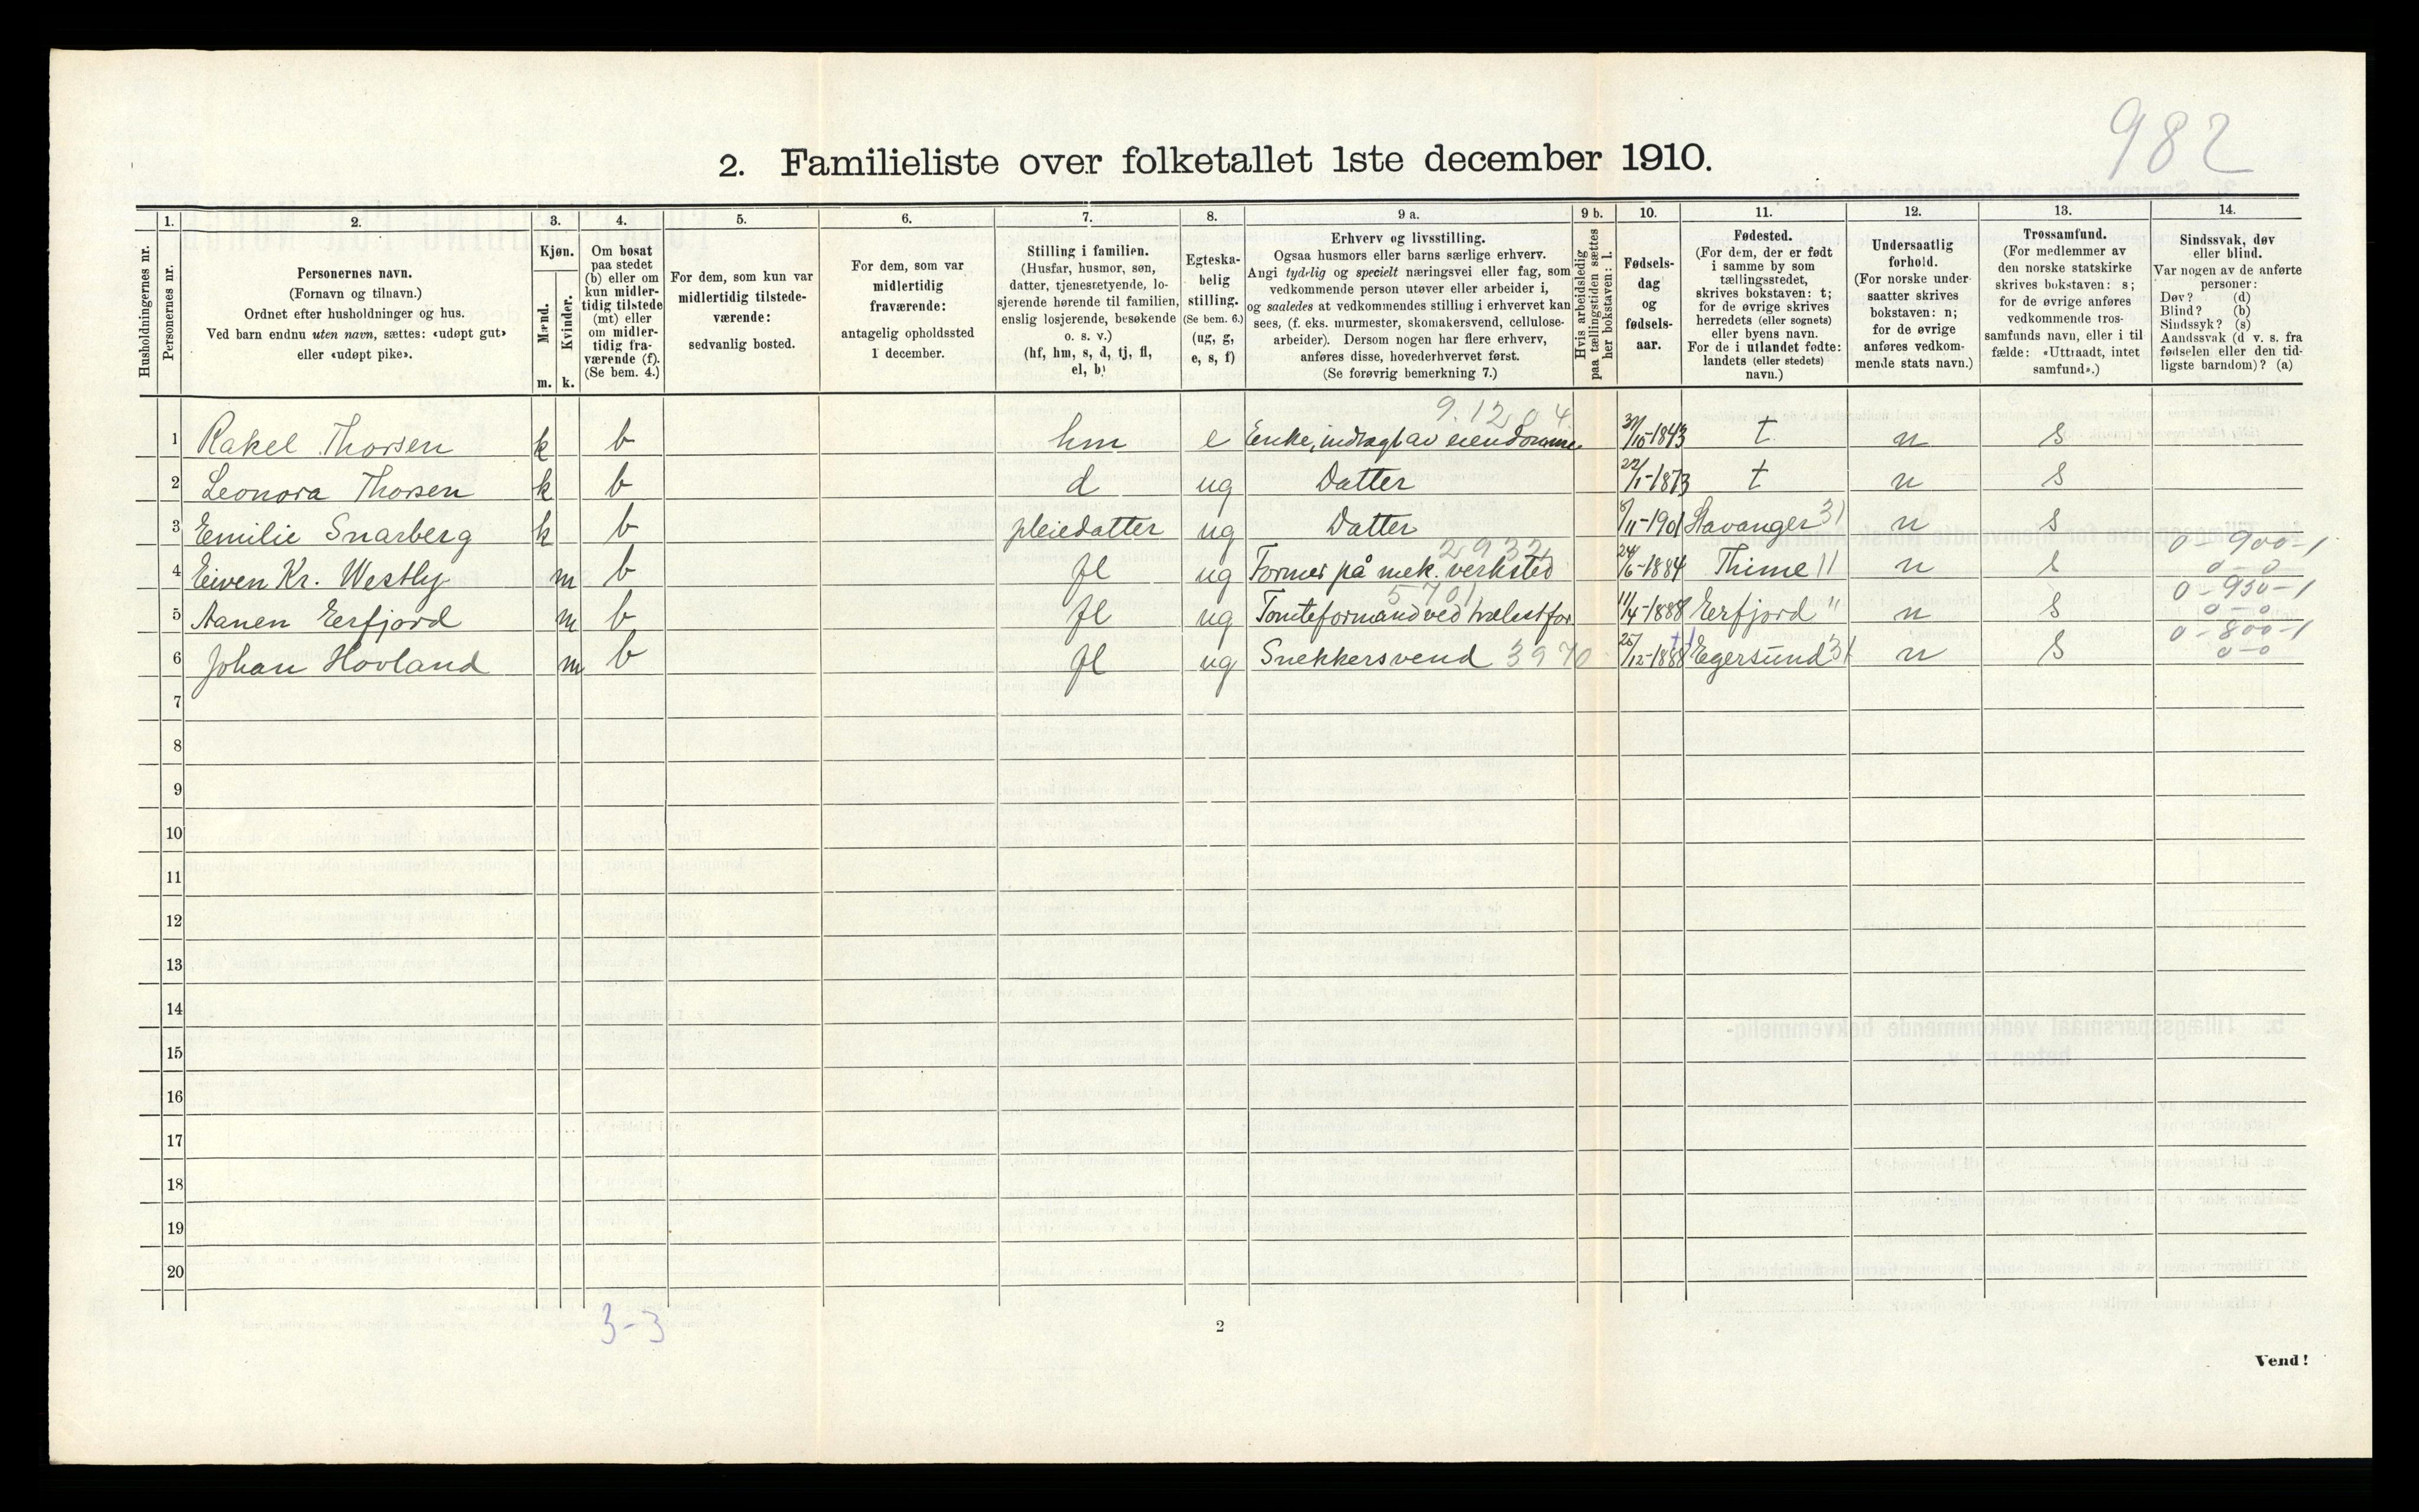 982
2. Familieliste over folketallet 1ste december 1910.
Husholdningernes nr.
1.
Personernes nr.
2.
Personernes navn.
(Fornavn og tilnavn.)
Ordnet efter husholdninger og hus.
Ved barn endnu uten navn, sættes: «udøpt gut»
eller «udøpt pike».
3.
Kjøn.
Mænd.
Kvinder.
m. k.
4.
Om bosat
paa stedet
(b) eller om
kun midler-
tidig tilstede
(mt) eller
om midler-
tidig fra-
værende (f).
(Se bem. 4.)
5.
For dem, som kun var
midlertidig tilstede-
værende:
sedvanlig bosted.
6.
For dem, som var
midlertidig
fraværende:
antagelig opholdssted
1 december.
7.
Stilling i familien.
(Husfar, husmor, søn,
datter, tjenestetyende, lo-
sjerende hørende til familien,
enslig losjerende, besøkende
o. s. v.)
(hf, hm, s, d, tj, fl,
el, b)
8.
Egteska-
belig
stilling.
(Se bem. 6.)
(ug, g,
e, s, f)
9 a.
Erhverv og livsstilling.
Ogsaa husmors eller barns særlige erhverv.
Angi tydelig og specielt næringsvei eller fag, som
vedkommende person utøver eller arbeider i,
og saaledes at vedkommendes stilling i erhvervet kan
sees, (f. eks. murmester, skomakersvend, cellulose-
arbeider). Dersom nogen har flere erhverv,
anføres disse, hovederhvervet først.
(Se forøvrig bemerkning 7.)
9 b.
Hvis arbeidsledig
paa tællingstiden sættes
her bokstaven: l.
10.
Fødsels-
dag
og
fødsels-
aar.
11.
Fødested.
(For dem, der er født
i samme by som
tællingsstedet,
skrives bokstaven: t;
for de øvrige skrives
herredets (eller sognets)
eller byens navn.
For de i utlandet fødte:
landets (eller stedets)
navn.)
12.
Undersaatlig
forhold.
(For norske under-
saatter skrives
bokstaven: n;
for de øvrige
anføres vedkom-
mende stats navn.)
13.
Trossamfund.
(For medlemmer av
den norske statskirke
skrives bokstaven: s;
for de øvrige anføres
vedkommende tros-
samfunds navn, eller i til
fælde: «Uttraadt, intet
samfund».)
14.
Sindssvak, døv
eller blind.
Var nogen av de anførte
personer:
Døv? (d)
Blind? (b)
Sindssyk? (s)
Aandssvak (d v. s. fra
fødselen eller den tid-
ligste barndom)? (a)
1 Rakel Thorsen k b hm e Enke, indtægt av eiendomme 31/10-1843 t n s
2 Leonora Thorsen k b d ug Datter 22/1-1873 t n s
3 Emilie Snarberg k b pleiedatter ug Datter 8/11-1901 Stavanger 31 n s
2932 0-900-1
4 Eiven Kr. Westly m b fl ug Former på mek. verksted 24/6-1884 Thime 11 n s 0-0
5701 0-950-1
5 Aanen Eerfjord m b fl ug Tomteformand ved trælastfor. 11/4-1888 Eerfjord " n s 0-0
0-800-1
6 Johan Hovland m b fl ug Snekkersvend 3970 25/12-1888 Egersund 31 n s 0-0
7
8
9
10
11
12
13
14
15
16
17
18
19
20
3-3
2
Vend!